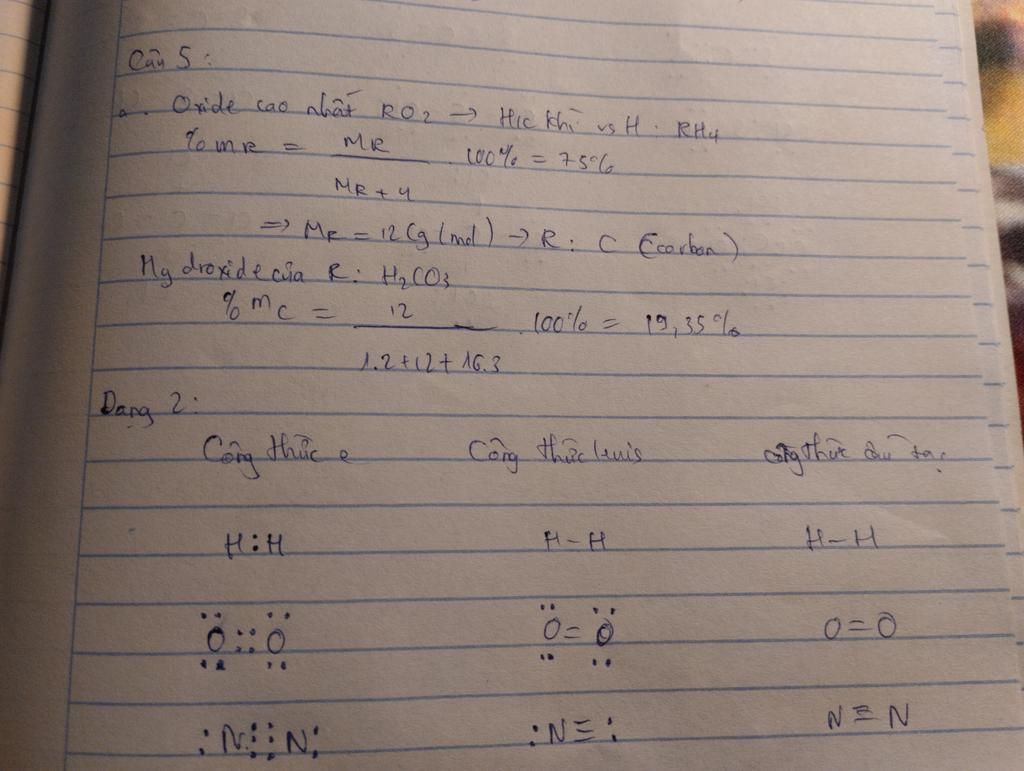 Câu 5:
a. Oxide cao nhất RO2 → H/c khí vs H: RH4
% mR = MR / MR + 4 . 100% = 75%
=> MR = 12 (g/mol) → R: C (carbon)
Hydroxide của R: H2CO3
% mC = 12 / 1.2+12+16.3 . 100% = 19,35%
Dạng 2:
Công thức e Công thức lewis công thức cấu tạo
H:H H-H H-H
:Ö::Ö: Ö=Ö O=O
:N:::N: :N≡: N≡N